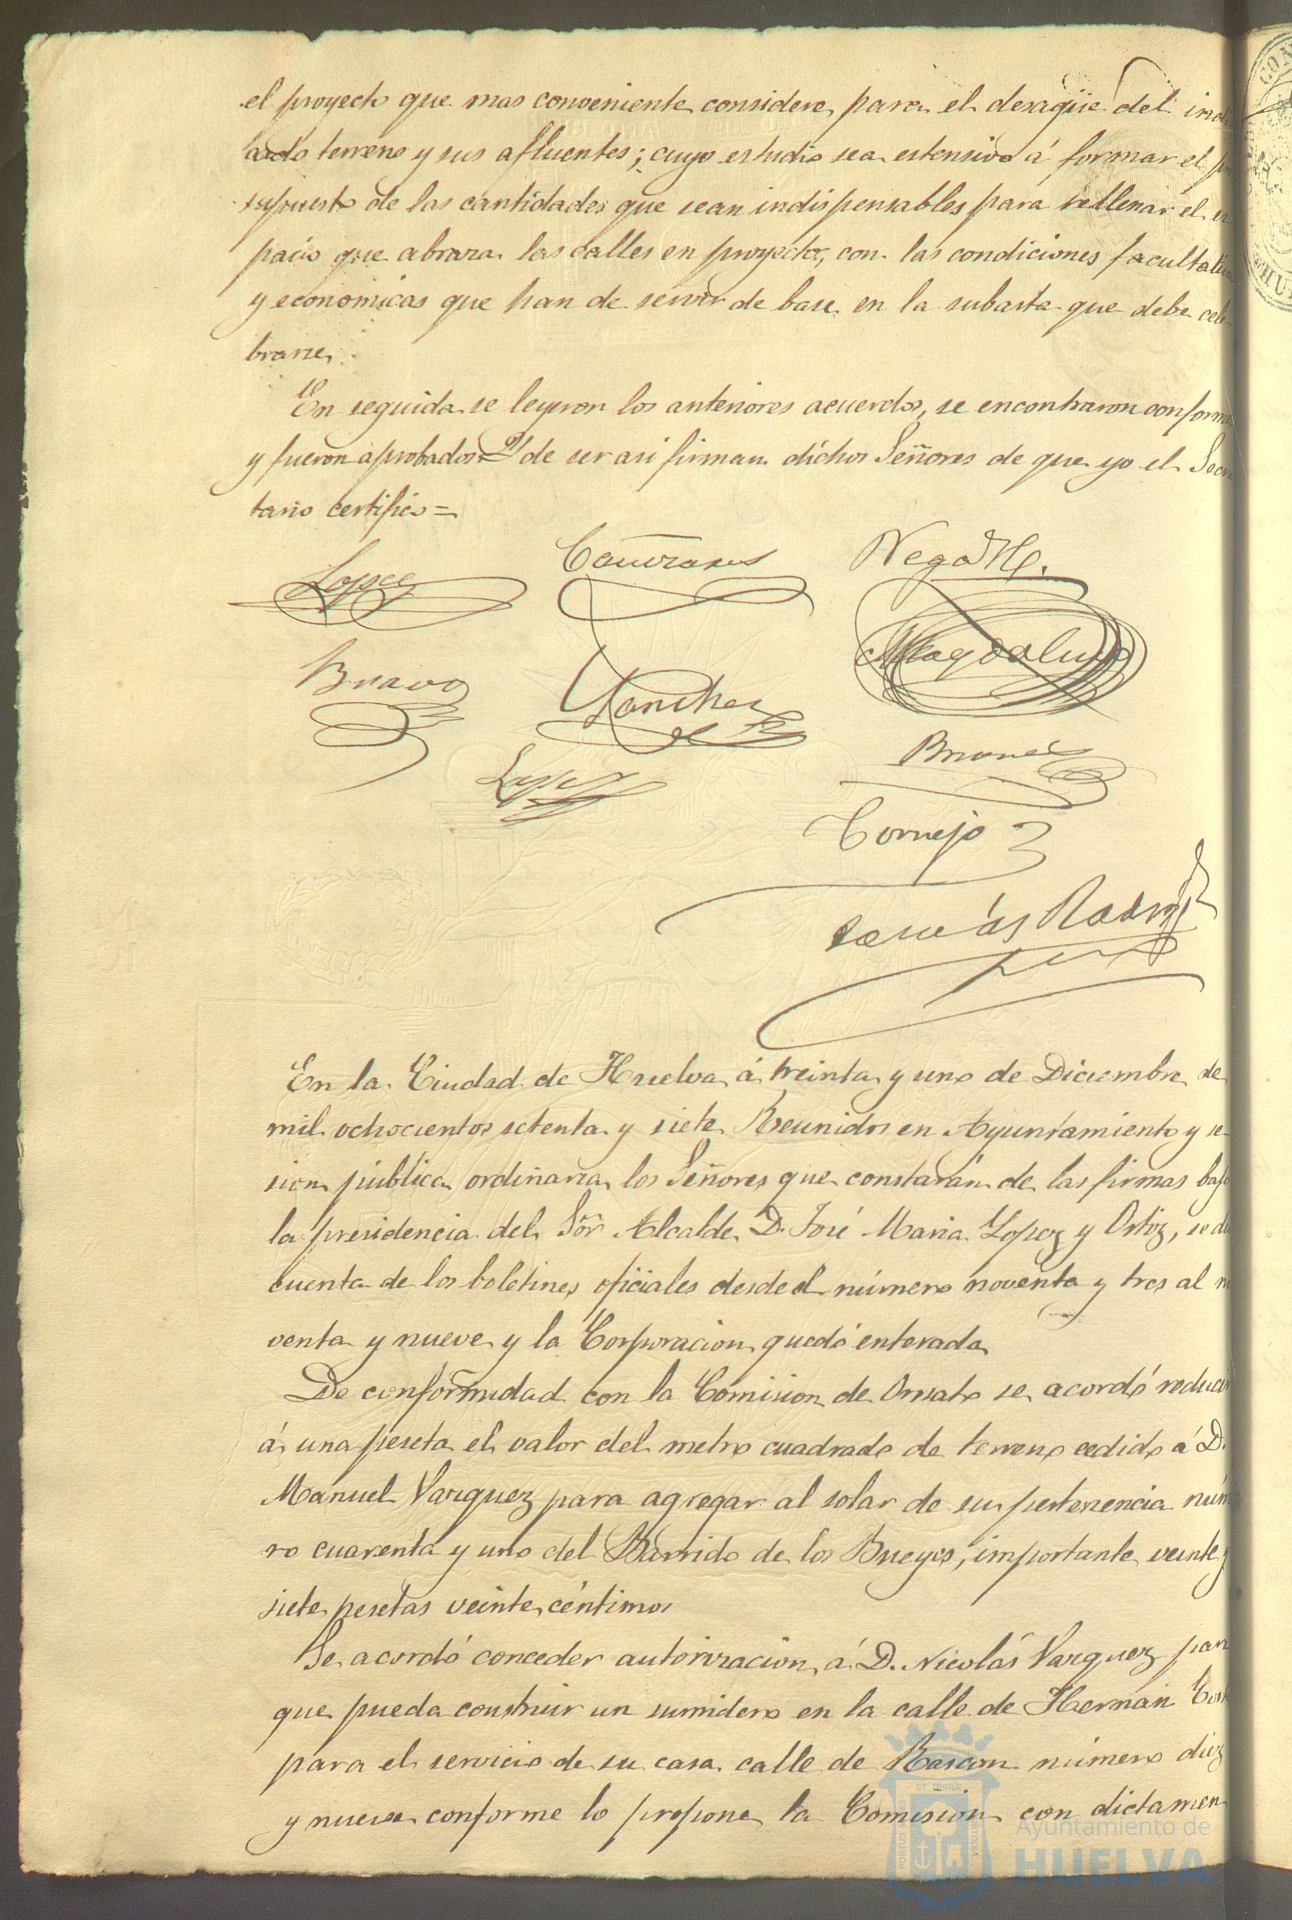 el proyecto que mas conveniente considere, para el desagüe del indi
cado terreno y sus afluentes; cuyo estudio sea estensivo á formar el pre
supuesto de las cantidades que sean indispensables para rellenar el es
pacio que abraza las calles en proyecto, con las condiciones facultativas
y economicas que han de servir de base en la subasta que debe cele
brarse.
En seguida se leyeron los anteriores acuerdos, se encontraron conformes
y fueron aprobados. Y de ser asi firman dichos Señores de que yo el Secre
tario certifico=
Lopez
Garrido
Bravo
Sanchez
Lopez
Cornejo
Tomás Rodrig
uez
En la Ciudad de Huelva á treinta y uno de Diciembre de
mil ochocientos setenta y siete Reunidos en Ayuntamiento y se
sion pública ordinaria los Señores que constarán de las firmas bajo
la presidencia del Sõr Alcalde D. José Maria Lopez y Ortiz, se dió
cuenta de los boletines oficiales desde el número noventa y tres al no
venta y nueve y la Corporacion quedó enterada
De conformidad con la Comision de Ornato se acordó reducir
á una peseta el valor del metro cuadrado de terreno cedido á D.
Manuel Vazquez para agregar al solar de su pertenencia núme
ro cuarenta y uno del Barrido de los Bueyes, importante veinte y
siete pesetas veinte céntimos
Se acordó conceder autorizacion á D. Nicolás Vazquez para
que pueda construir un sumidero en la calle de Hernan Cortés
para el servicio de su casa calle de Rascon número diez
y nueve conforme lo propone la Comision con dictamen
Ayuntamiento de
HUELVA